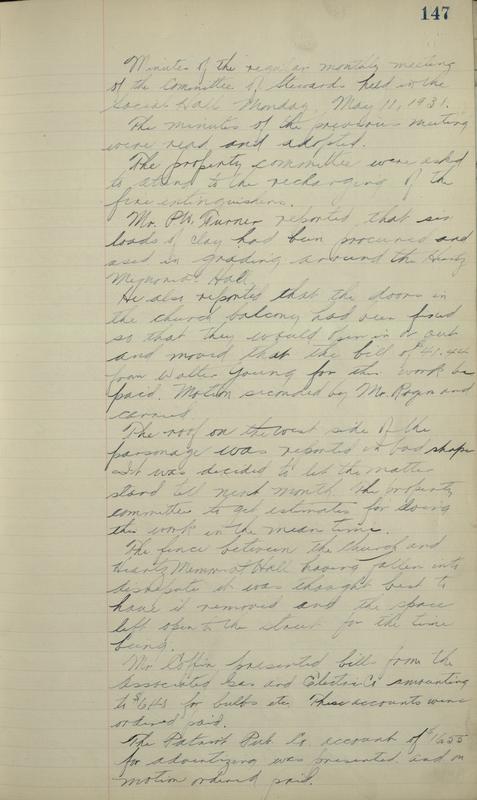 147
Minutes of the regular monthly meeting
of the Committee of Stewards held in the
Social Hall Monday, May 11, 1931.
The minutes of the previous meeting
were read and adopted.
The property committee were asked
to attend to the recharging of the
fire extinguishers.
Mr. P.W. Turner reported that six
loads of clay had been procured and
used in grading around the Heartz
Memorial Hall.
He also reported that the doors in
the church balcony had been fixed
so that they would open in or out
and moved that the bill of $41.44
from Walter Young for this work be
paid. Motion seconded by Mr. Rogers and
carried.
The roof on the west side of the
parsonage was reported in bad shape
It was decided to let the matter
stand till next month. The property
committee to get estimates for doing
this work in the mean time.
The fence between the Church and
Heartz Memorial Hall having fallen into
disrepair it was thought best to
have it removed and the space
left open to the street for the time
being.
Mr Coffin presented bills from the
Associated Gas and Electric Co amounting
to for bulbs etc. These accounts were
ordered paid.
The Patriot Pub. Co. account of $16.55
for advertizing was presented and on
motion ordered paid.